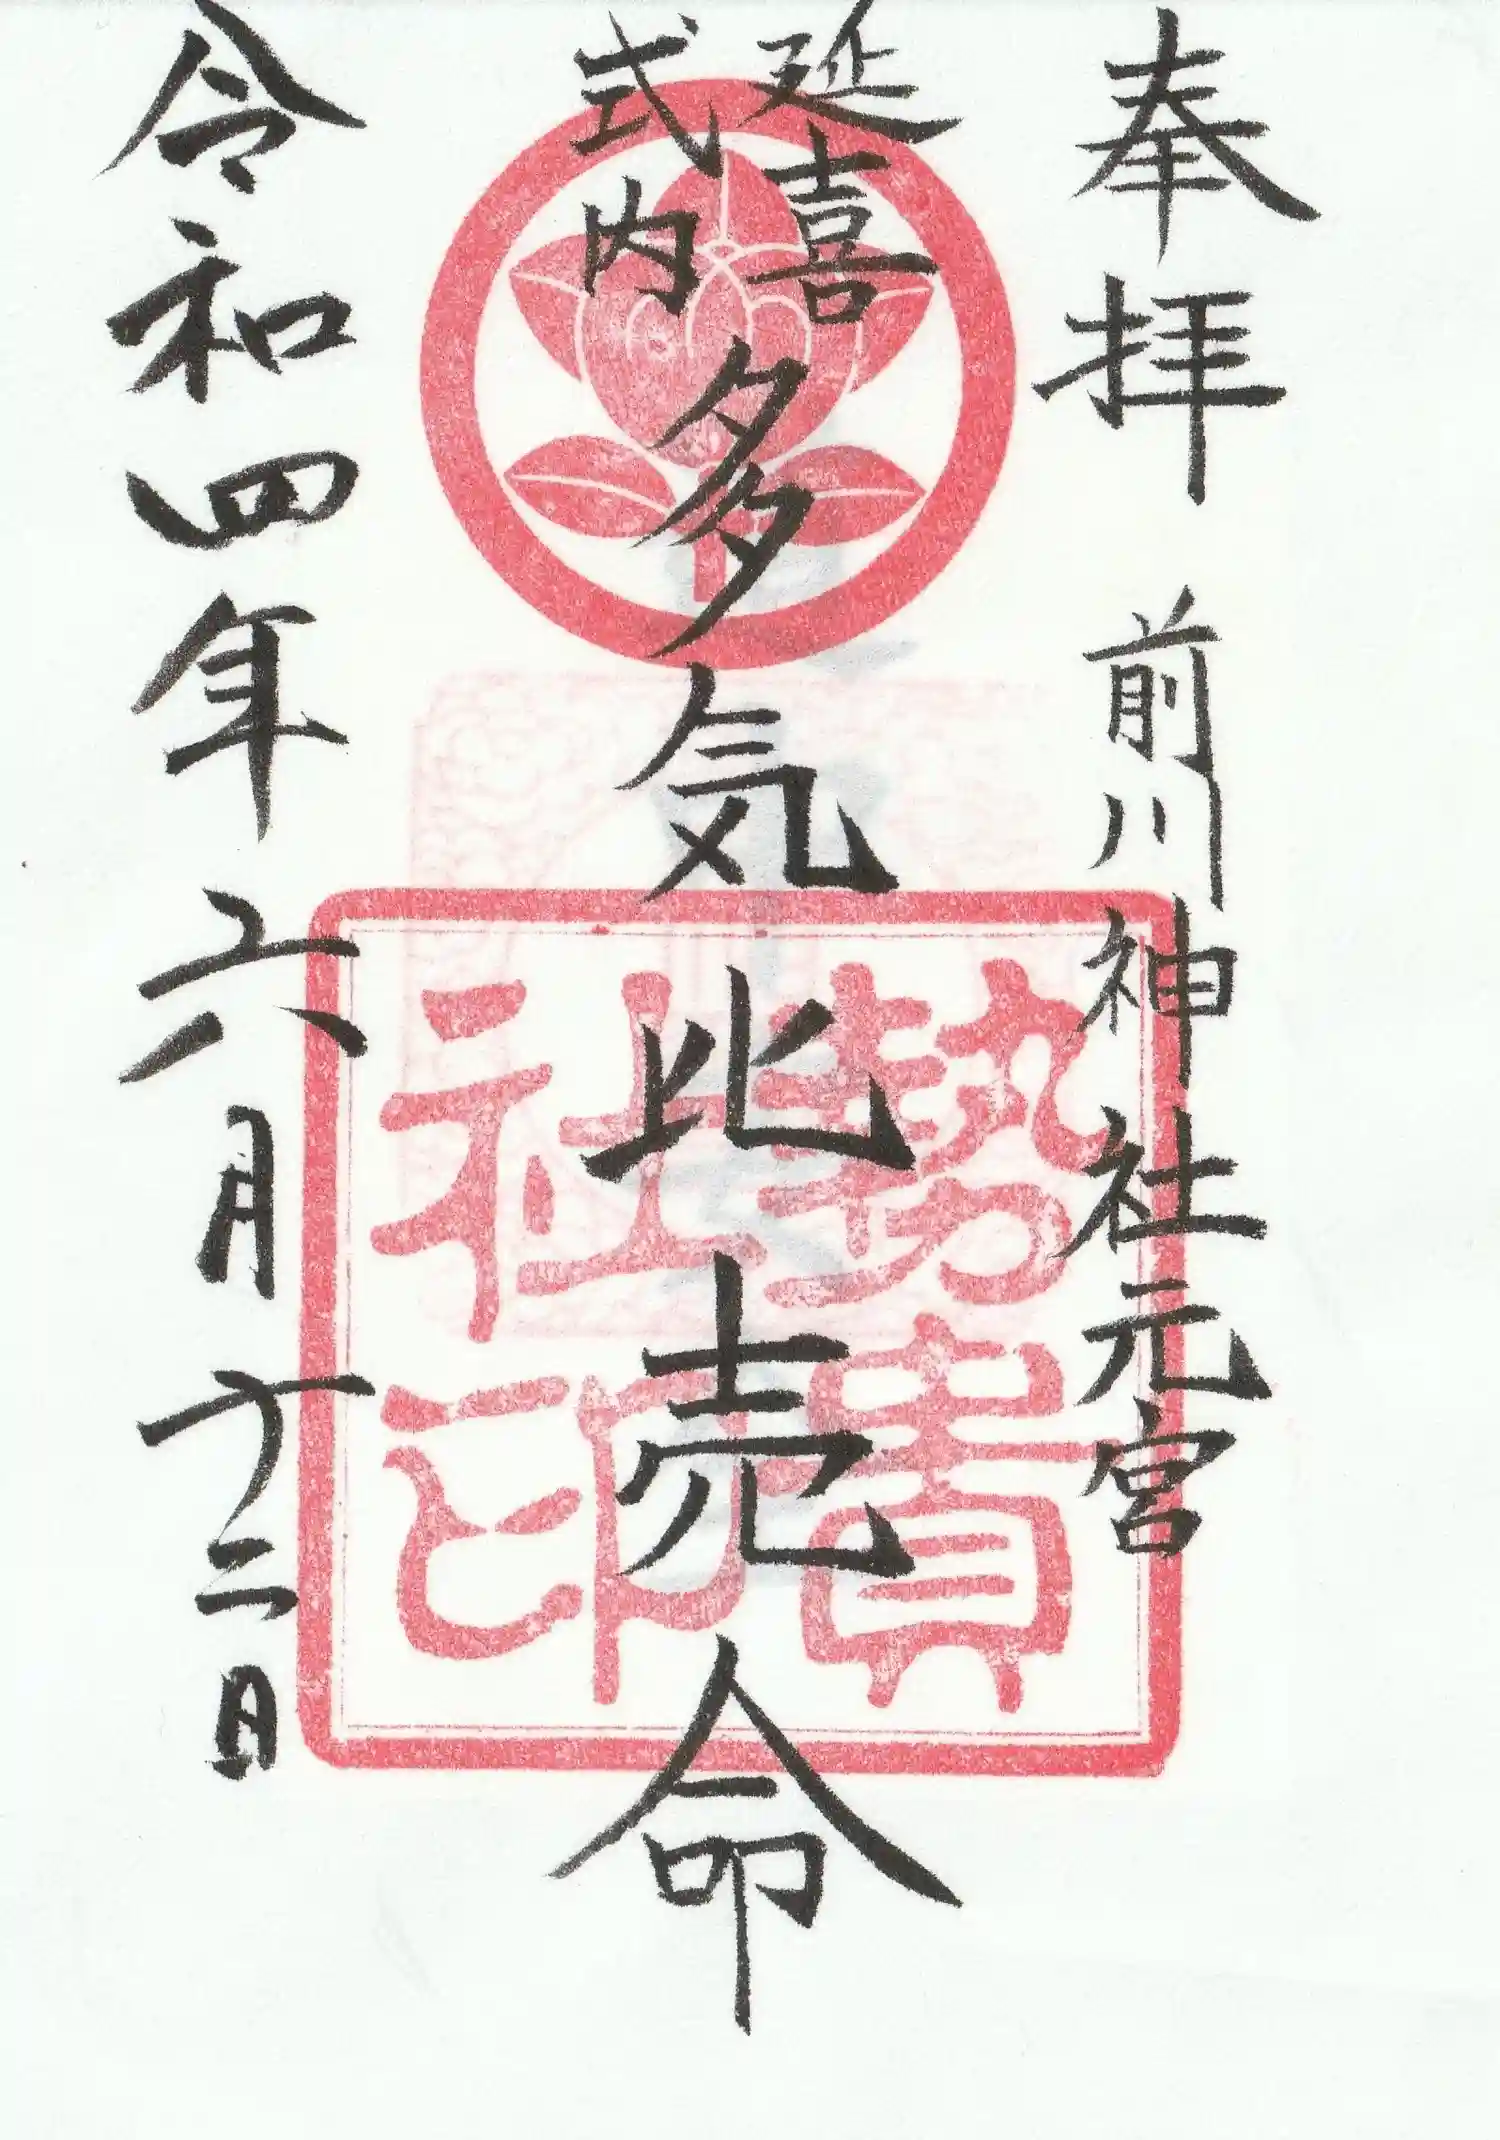 奉拝 前川神社元宮
延喜
式内
多気比売命
令和四年六月十二日
勢貴
社印